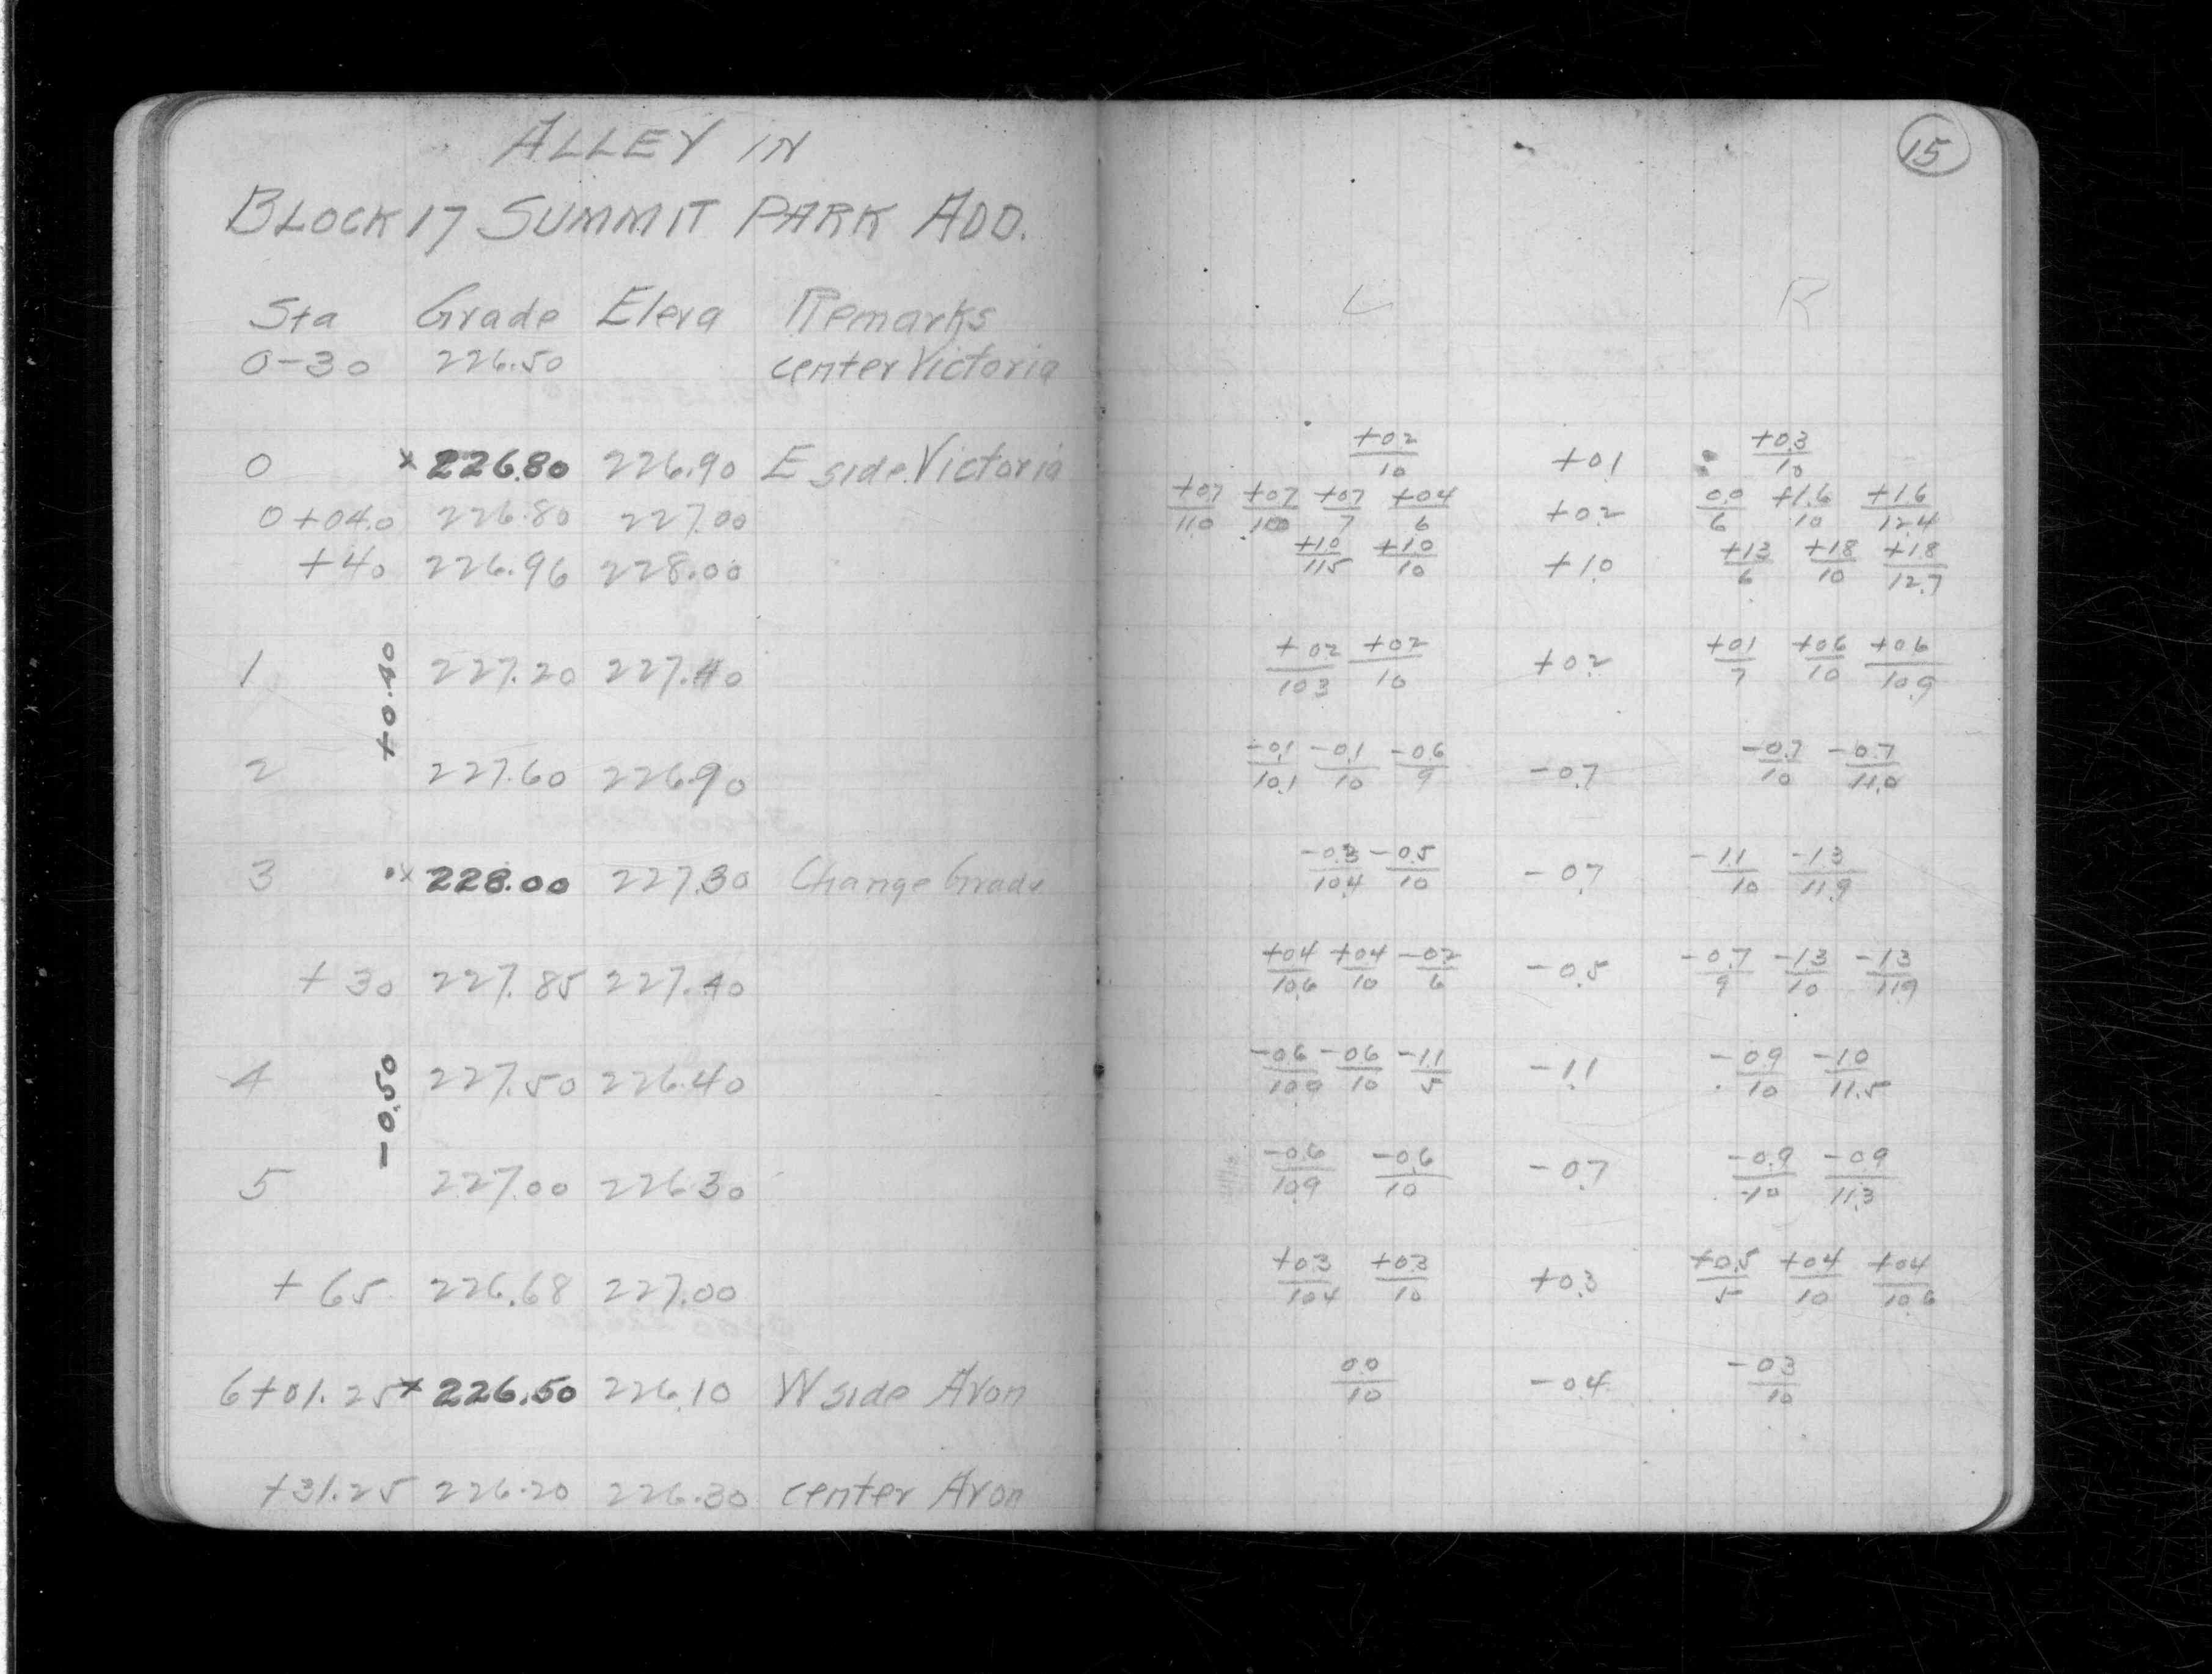 ALLEY IN
BLOCK 17 SUMMIT PARK ADD.
Sta Grade Eleva Remarks
0-30 226.50 center Victoria
0 x 226.80 226.90 E side Victoria
0+04.0 226.80 227.00
+40 226.96 228.00
+0.40
1 227.20 227.40
2 227.60 226.90
3 x 228.00 227.30 Change Grade
+30 227.85 227.40
-0.50
4 227.50 226.40
5 227.00 226.30
+65 226.68 227.00
6+01.25 x 226.50 226.10 W side Avon
+31.25 226.20 226.30 center Avon
15
L R
+0.2/10 +0.1 +0.3/10
+0.7/11.0 +0.7/10.0 +0.7/7 +0.4/6 +0.2 0.0/6 +1.6/10 +1.6/12.4
+1.0/11.5 +1.0/10 +1.0 +1.3/6 +1.8/10 +1.8/12.7
+0.2/10.3 +0.2/10 +0.2 +0.1/7 +0.6/10 +0.6/10.9
-0.1/10.1 -0.1/10 -0.6/9 -0.7 -0.7/10 -0.7/11.0
-0.3/10.4 -0.5/10 -0.7 -1.1/10 -1.3/11.9
+0.4/10.6 +0.4/10 -0.2/6 -0.5 -0.7/9 -1.3/10 -1.3/11.9
-0.6/10.0 -0.6/10 -1.1/5 -1.1 -0.9/10 -1.0/11.5
-0.6/10.9 -0.6/10 -0.7 -0.9/10 -0.9/11.3
+0.3/10.4 +0.3/10 +0.3 +0.5/5 +0.4/10 +0.4/10.6
0.0/10 -0.4 -0.3/10